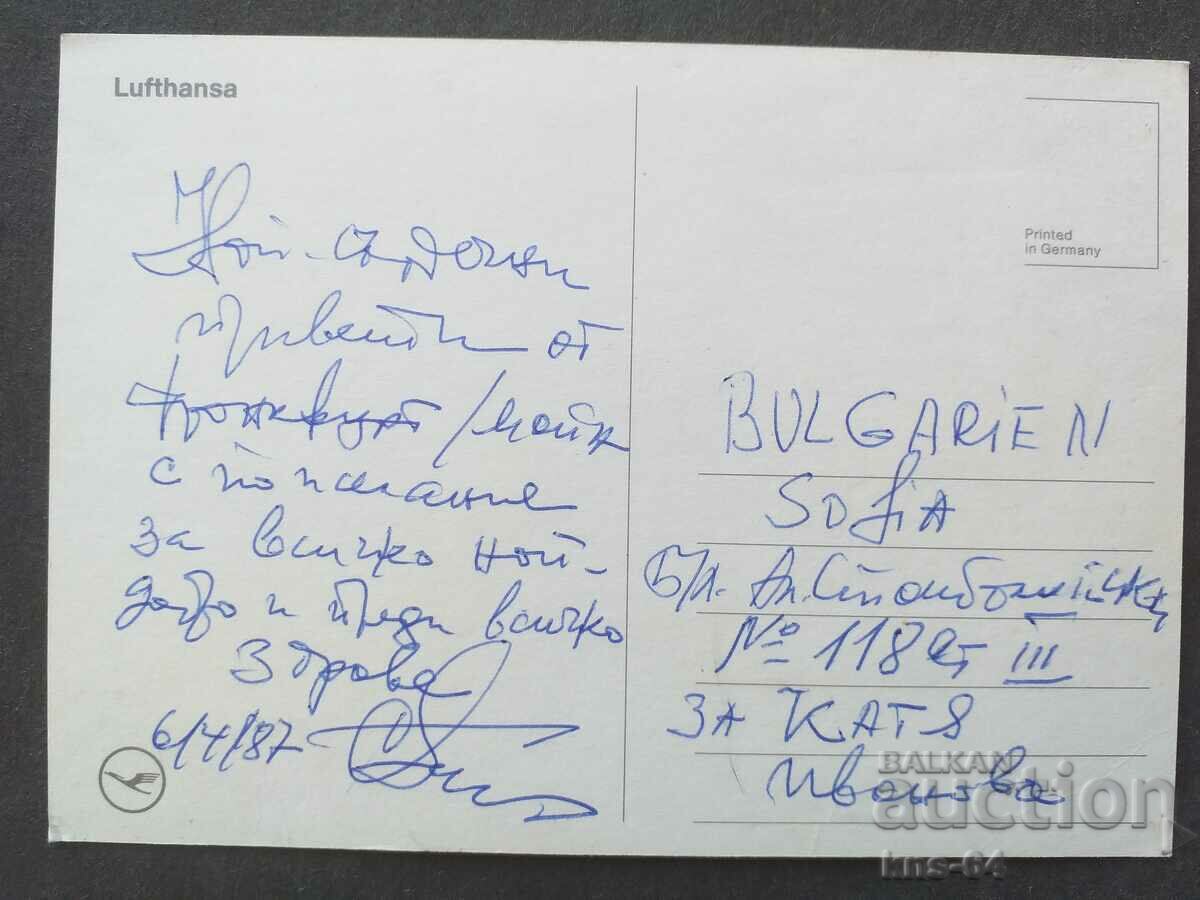 Lufthansa
Най-сърдечни
привети от
Франкфурт/Майн
с пожелание
за всичко най-
добро и преди всичко
здраве
6/4/87
Printed
in Germany
BULGARIEN
SOFiA
Бул. Ал. Стамболийски
№ 118 ет III
ЗА КАТЯ
Иванова
BALKAN
auction
kns-64